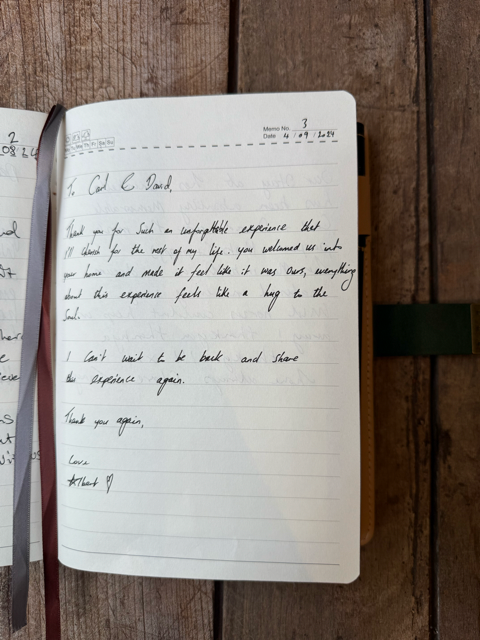 2
08 24
Memo No. 3
Date 4 / 09 / 2024
To Carl & David,
Thank you for such an unforgettable experience that
I'll cherish for the rest of my life. you welcomed us into
your home and made it feel like it was ours, everything
about this experience feels like a hug to the
Soul.
I can't wait to be back and share
this experience again.
Thank you again,
Love
Albert ♡